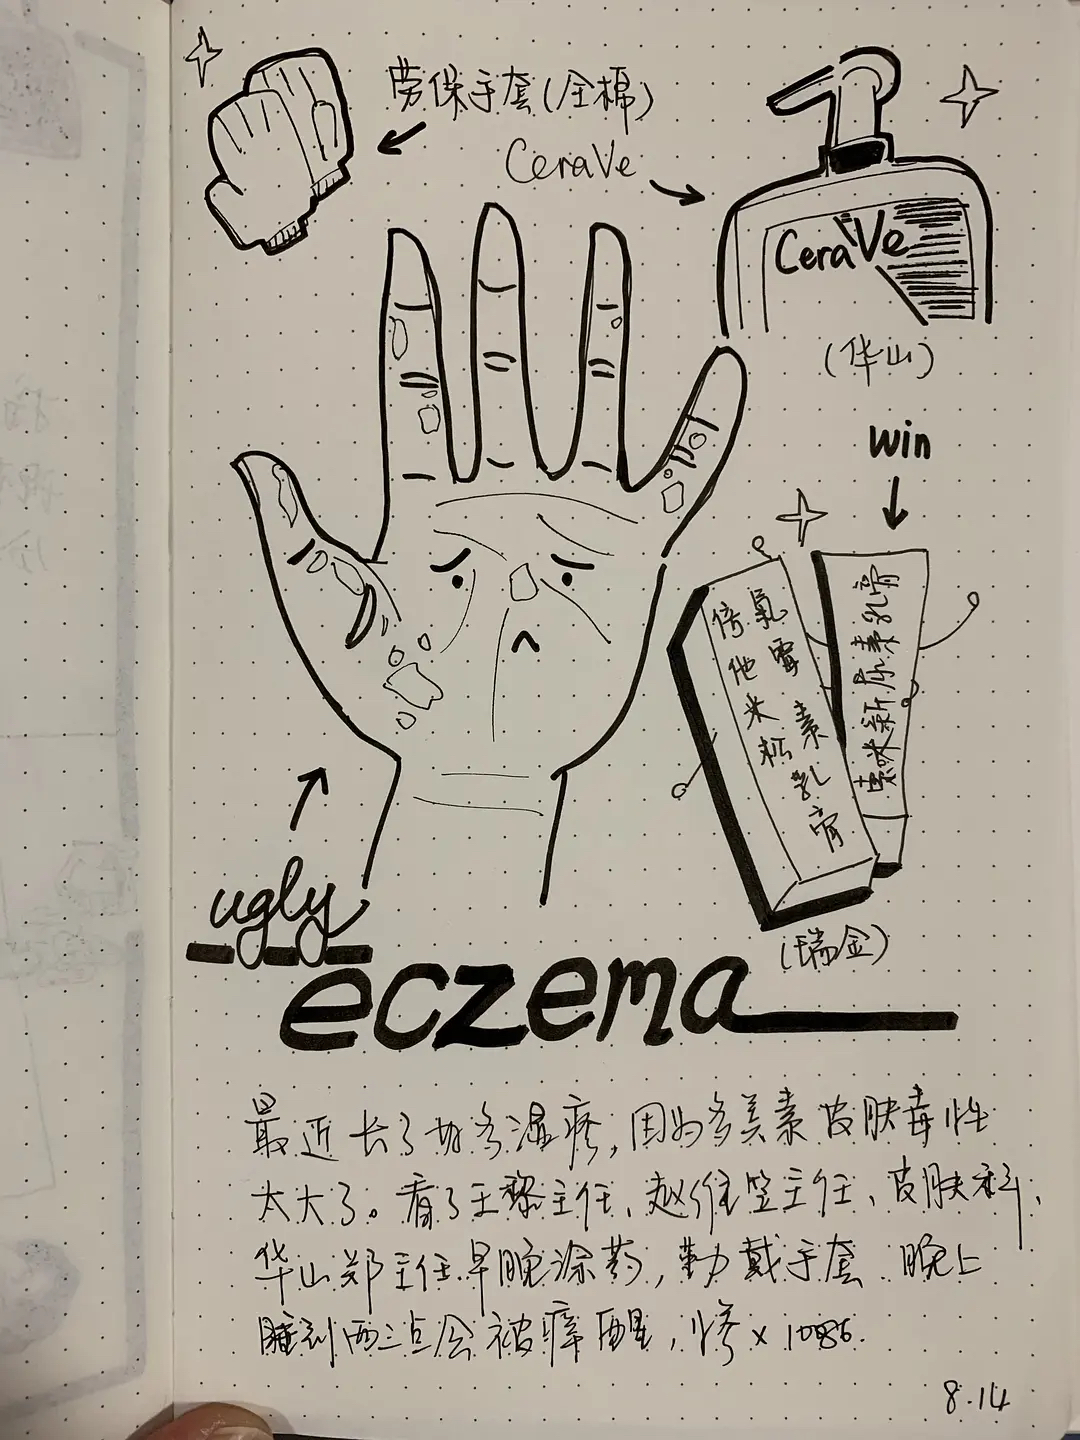 劳保手套(全棉)
CeraVe
CeraVe
(华山)
win
倍他米松
氧霉素乳膏
素咪新尿素乳膏
(瑞金)
ugly
eczema
最近长了好多湿疹,因为多美素皮肤毒性
太大了。看了王黎主任、赵维莅主任、皮肤科、
华山郑主任.早晚涂药,勤戴手套.晚上
睡到两三点会被痒醒,惨×10086.
8.14